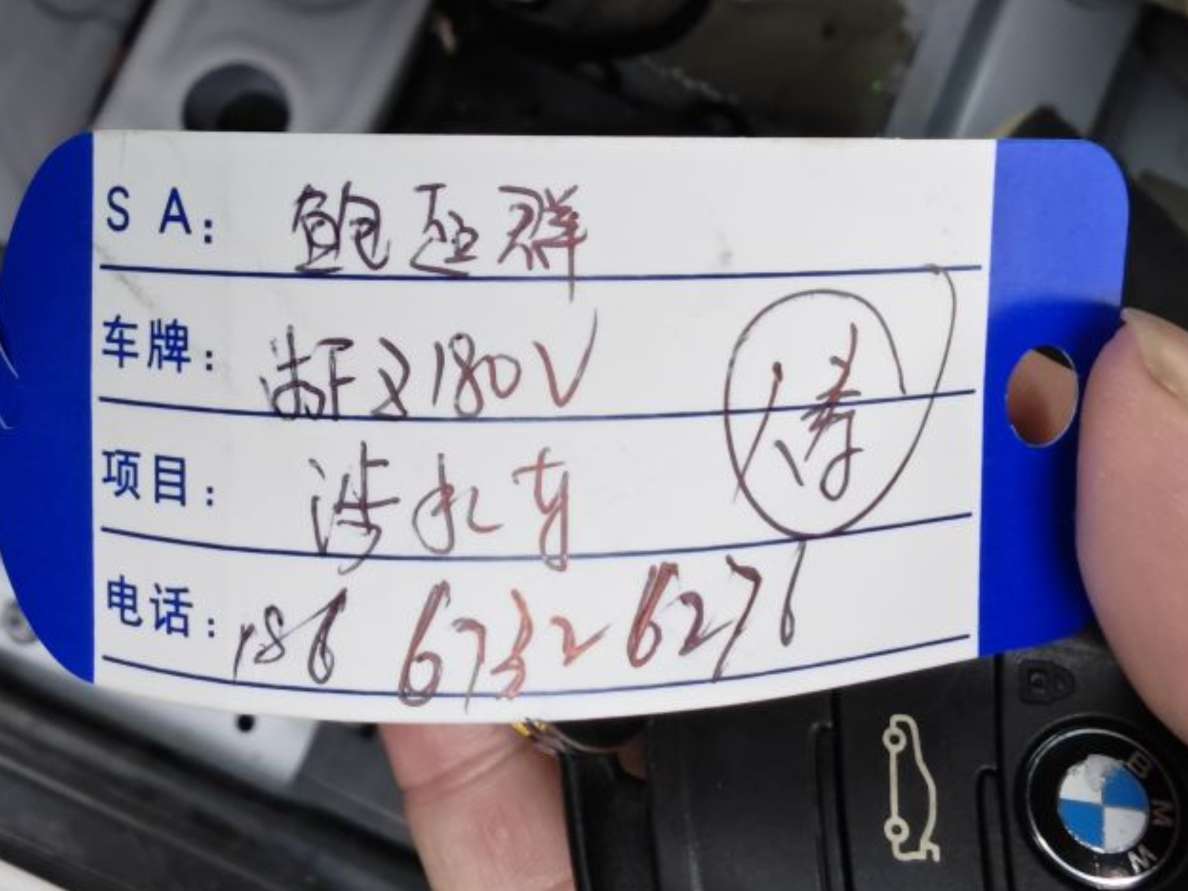 SA: 鲍亚群
车牌: 浙F
180V
项目: 涉水车
电话: 186 6732 6276
BMW